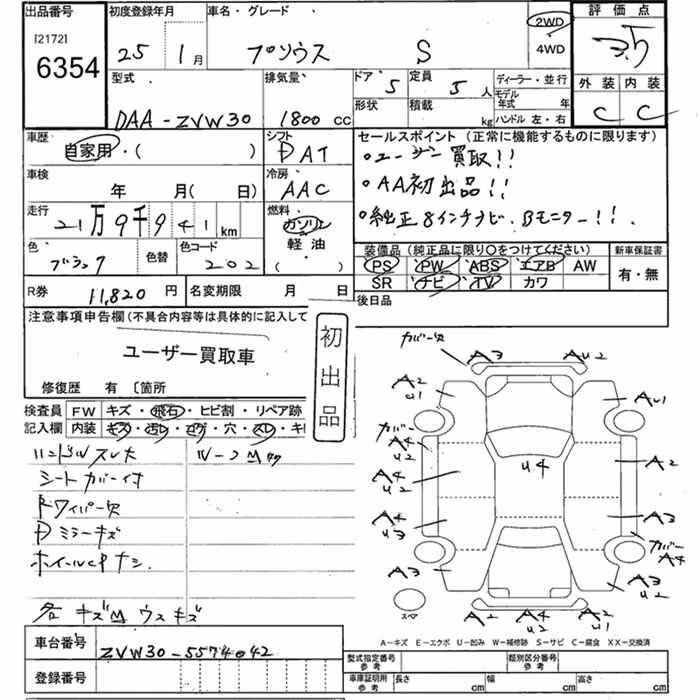 出品番号
[2172]
6354
初度登録年月
25 1月
車名・グレード
プリウス S
2WD
4WD
評価点
3.5
外装 内装
C C
型式
DAA-ZVW30
排気量
1800 cc
ドア 5
形状
定員 5 人
積載 kg
ディーラー・並行
モデル年式 年
ハンドル 左・右
車歴
自家用・( )
シフト
D AT
セールスポイント (正常に機能するものに限ります)
・ユーザー買取!!
・AA初出品!!
・純正8インチナビ.Bモニター!!.
車検
年 月( 日)
冷房
AAC
走行
21万9千941km
燃料
ガソリン
軽油
( )
色
ブラック
色替
色コード
202
装備品 (純正品に限り○をつけてください)
PS PW ABS エアB AW
SR ナビ TV カワ
新車保証書
有・無
R券 11,820 円
名変期限 月 日
後日品
注意事項申告欄(不具合内容等は具体的に記入して
ユーザー買取車
修復歴 有 〔箇所
初出品
検査員
記入欄
FW キズ・飛石・ヒビ割・リペア跡
内装 キズ・汚レ・コゲ・穴・スレ・キ
ハンドルスレ大
シートカバー付
Rワイパー欠
Dミラーキズ
ホイールCPナシ
各キズM ウスキズ
カバー欠
A3 AU2
A2
U1
AU1
カバー欠
A4
U2
A4
U2
U4
A2
A4
U3
A3
カバー
A4
A3
A3
U2
A2 A4
U2
A2
U1
スペア
A-キズ E-エクボ U-凹み W-補修跡 S-サビ C-腐食 XX-交換済
車台番号
ZVW30-5574042
登録番号
型式指定番号
参考
類別区分番号
参考
車庫証明用
参考
長さ cm 幅 cm 高さ cm